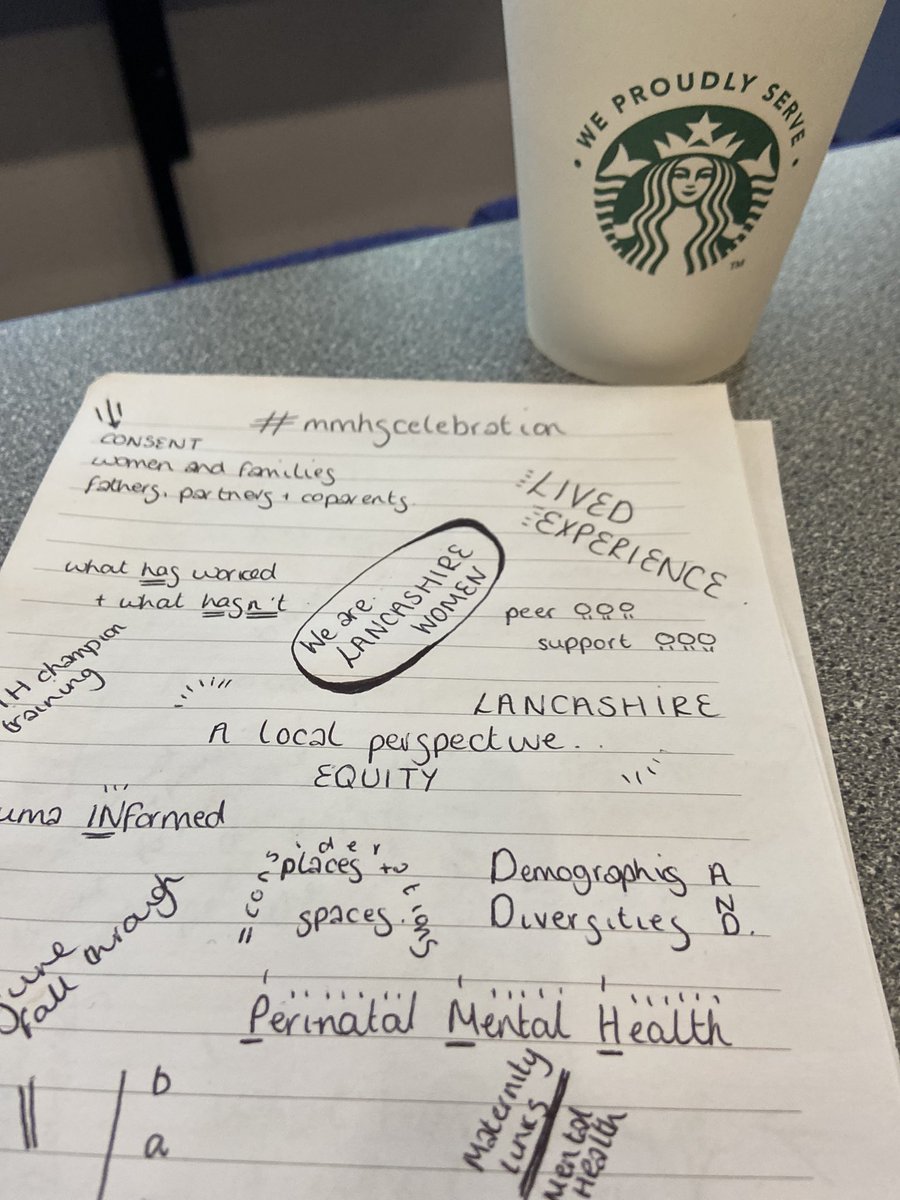 WE PROUDLY SERVE
TM
#mmhscelebration
CONSENT
women and families
fathers, partners + coparents.
LIVED
EXPERIENCE
what has worked
+ what hasn't
We are
LANCASHIRE
WOMEN
peer
support
champion
training
LANCASHIRE
A local perspective..
EQUITY
uma INformed
considerations
places to
spaces.
Demographis AND.
Diversities
through
fall
Perinatal Mental Health
b
a
Maternity
Links
Mental
Health